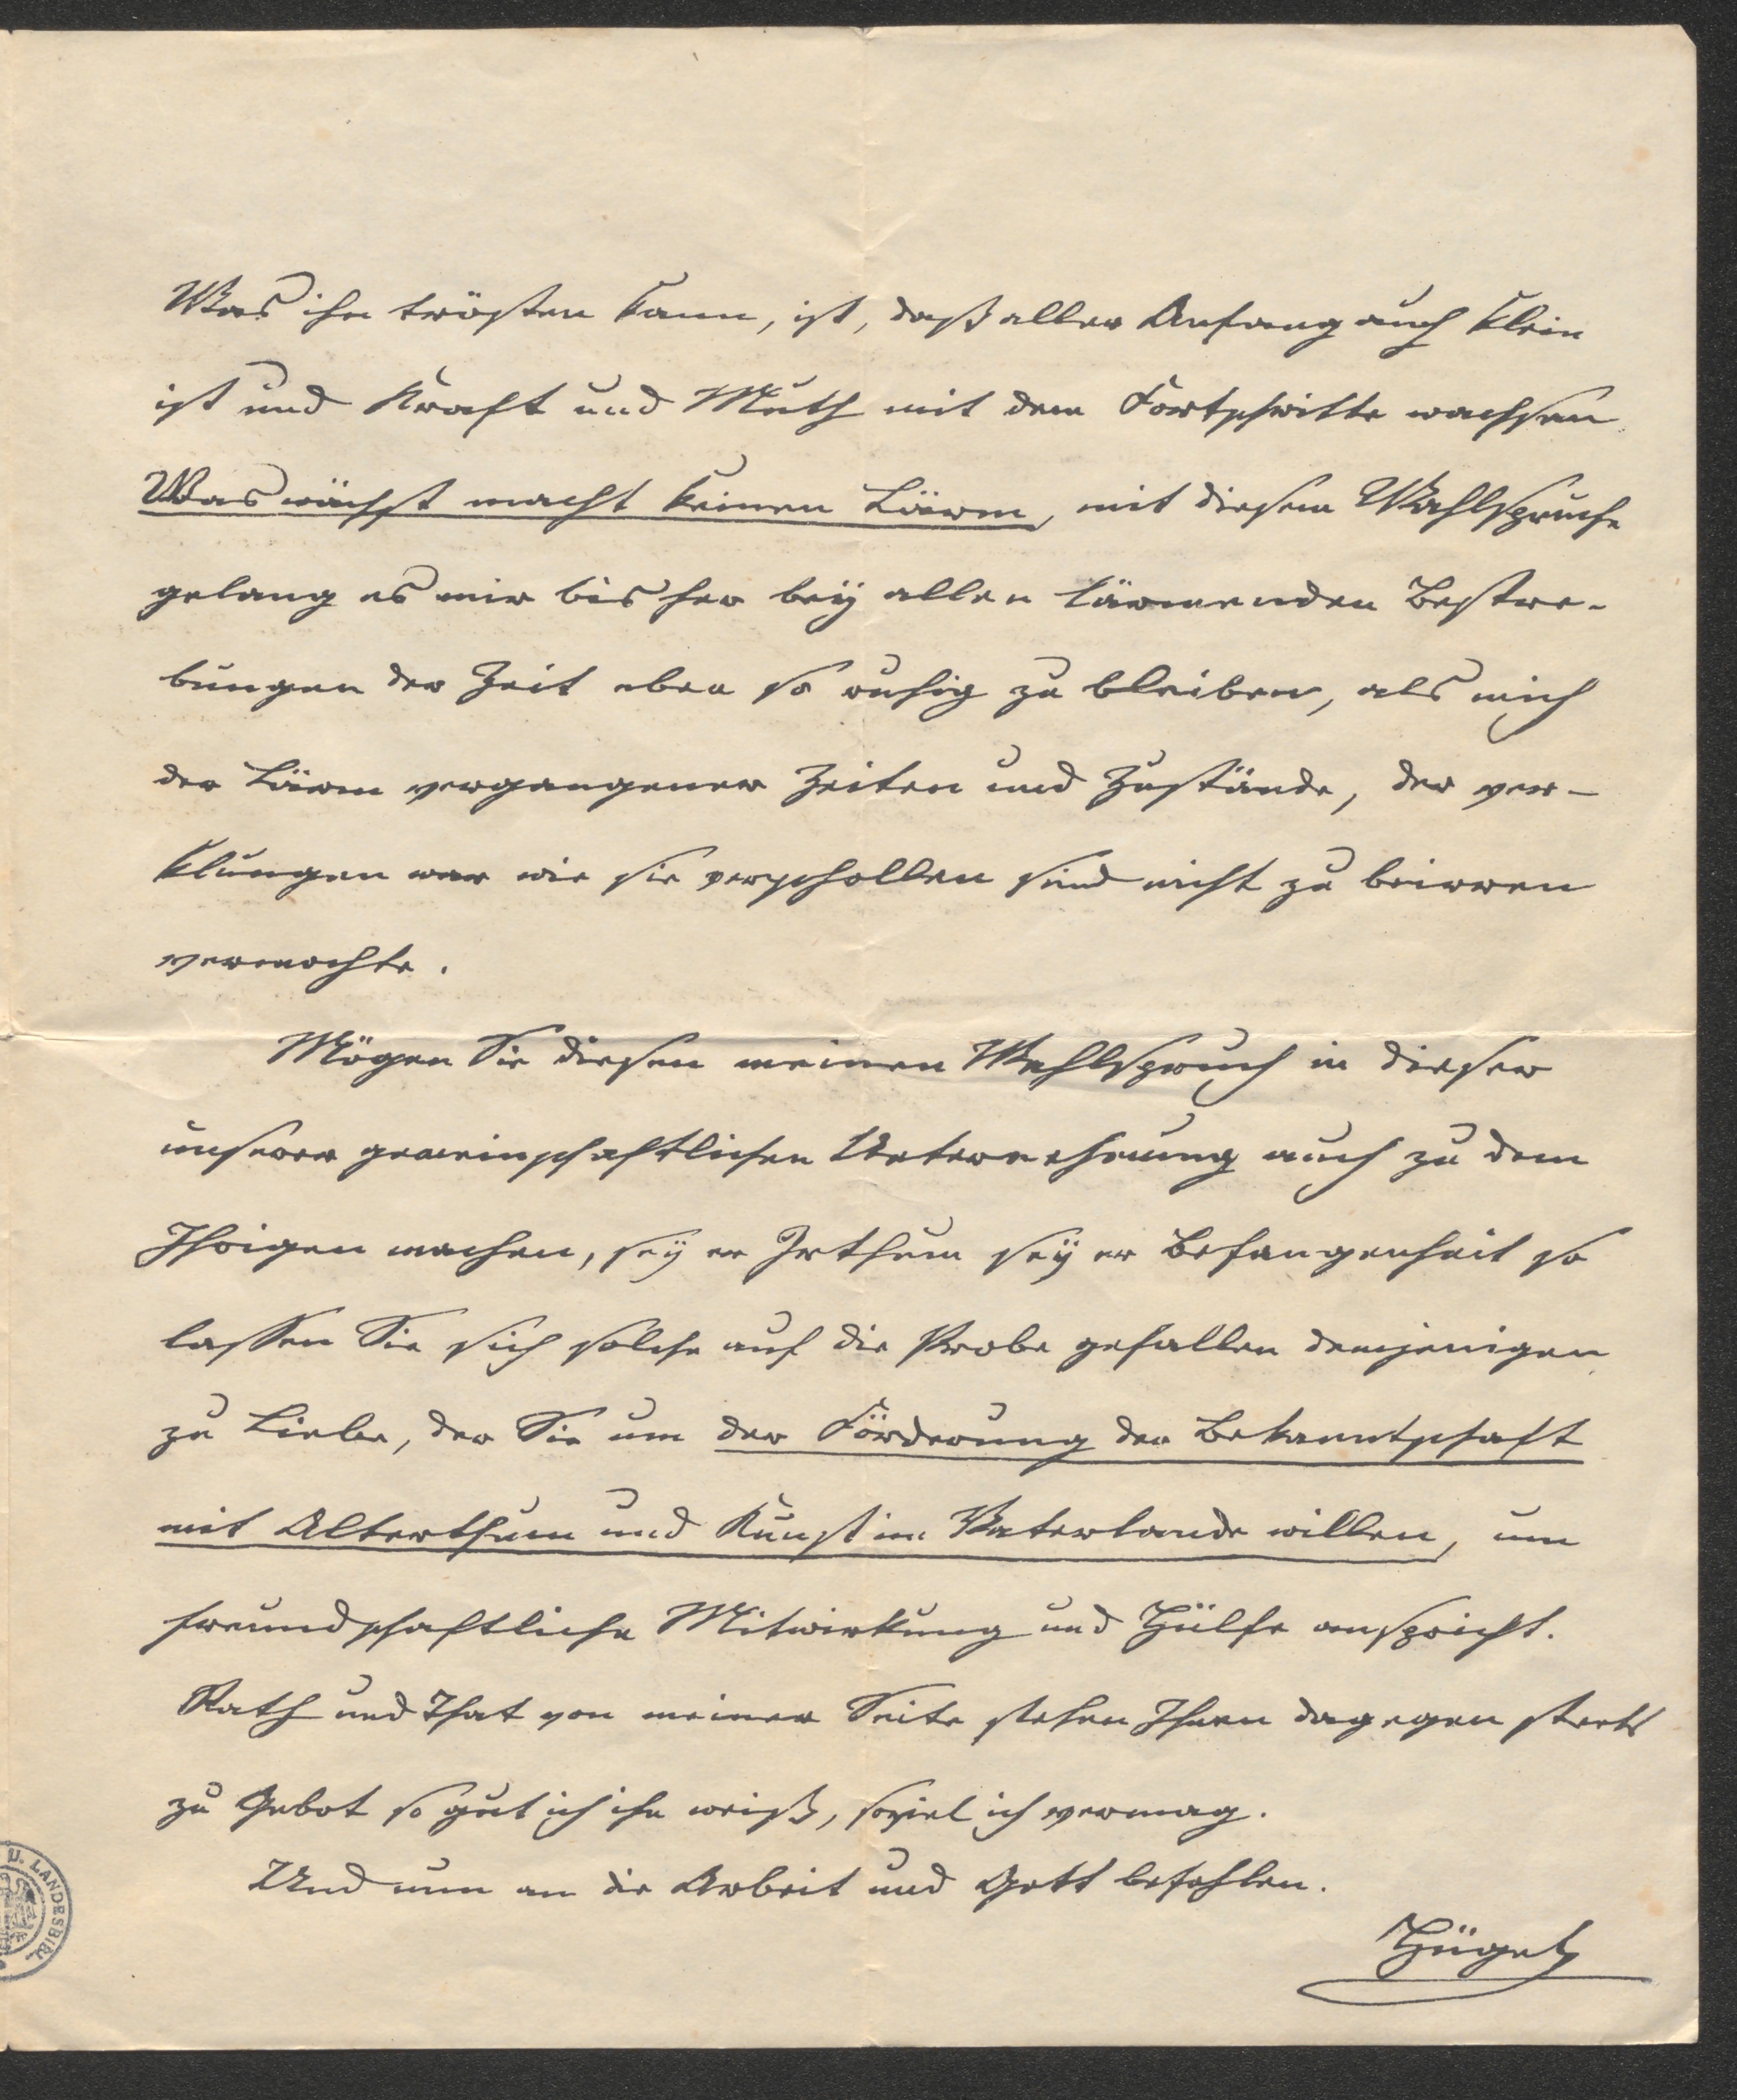 Was ihn trösten kann, ist, daß aller Anfang auch klein
ist und Kraft und Muth mit dem Fortschritte wachsen.
Was wächst macht keinen Lärm, mit diesem Wahlspruche
gelang es mir bis her bey allen lärmenden Bestre-
bungen der Zeit eben so ruhig zu bleiben, als mich
der Lärm vergangener Zeiten und Zustände, der ver-
klungen war wie sie verschollen sind nicht zu beirren
vermochte.
Mögen Sie diesen meinen Wahlspruch in dieser
unserer gemeinschaftlichen Unternehmung auch zu dem
Ihrigen machen, sey er Irthum sey er Befangenheit so
lassen Sie sich solche auf die Probe gefallen demjenigen
zu Liebe, der Sie um der Förderung der Bekanntschaft
mit Alterthum und Kunst im Vaterlande willen, um
freundschaftliche Mitwirkung und Hülfe anspricht.
Rath und That von meiner Seite stehen Ihnen dagegen stets
zu Gebot so gut ich ihn weiß, soviel ich vermag.
Und nun an die Arbeit und Gott befohlen.
Hügel
U. LANDESBIBL.